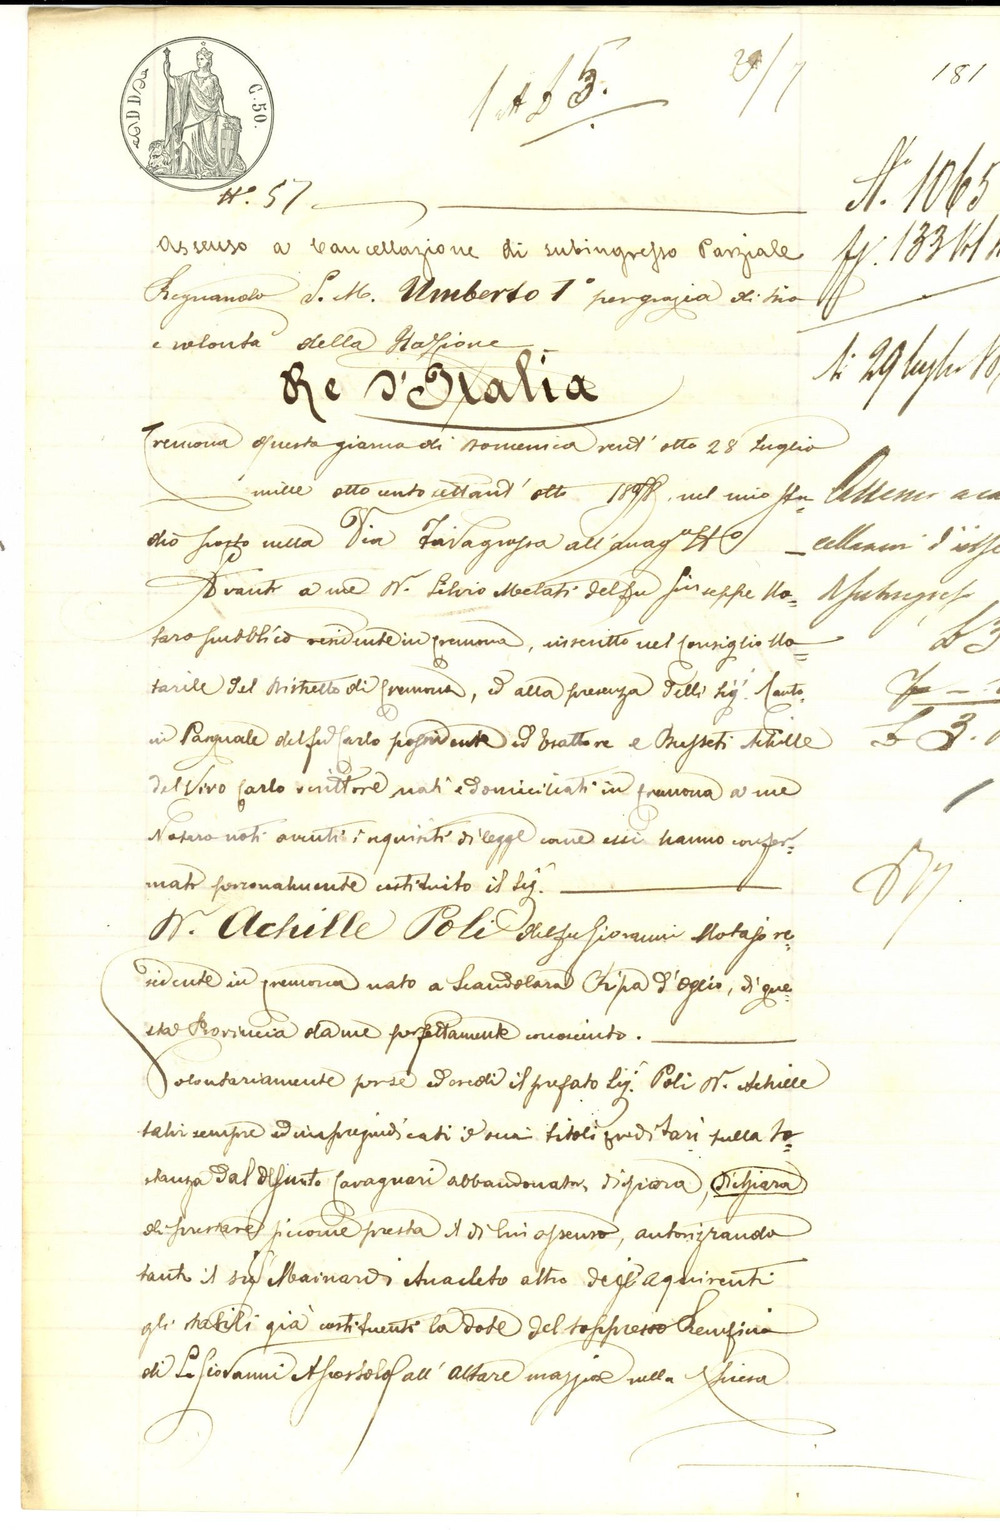 C. 50.
1 A £ 3.
181
N.º 57
N. 1065
Assenso a Cancellazione di subingresso Parziale
Regnando S. M. Umberto 1º per grazia di Dio
e volontà della Nazione
Re d'Italia
Ni 29 luglio
Cremona questa giorno di Domenica vent'otto 28 Luglio
mille ottocento settant'otto 1878, nel mio Stu=
dio posto nella Via all'anagº Nº
Avanti a me Dr. Silvio Melati del fu Giuseppe No=
taro pubblico residente in Cremona, inscritto nel Consiglio No=
tarile del Distretto di Cremona, ed alla presenza delli Sig.ri
Pasquale del fu Carlo possidente ed Esattore e Busseti Achille
del Vivo Carlo scrittore nati e domiciliati in Cremona a me
Notaro noti aventi i requisiti di legge come essi hanno confer=
mato personalmente costituito il Sig.r
£ 3.
Dr. Achille Poli del fu Giovanni Notajo re=
sidente in Cremona nato a Scandolara Ripa d'Oglio, di que=
sta Provincia da me perfettamente conosciuto.
Volontariamente per sè ed eredi il prefato Sig.r Poli Dr. Achille
salvi sempre ed impregiudicati i suoi titoli creditari sulla so=
stanza dal defunto Cavagnari abbandonata, dichiara, dichiara
di prestare siccome presta il di lui assenso, autorizzando
tanto il sig.r Mainardi Anacleto altro degl'aquirenti
gli stabili già costituenti la dote del soppresso Beneficio
di S. Giovanni Apostolo all'Altare maggiore nella Chiesa